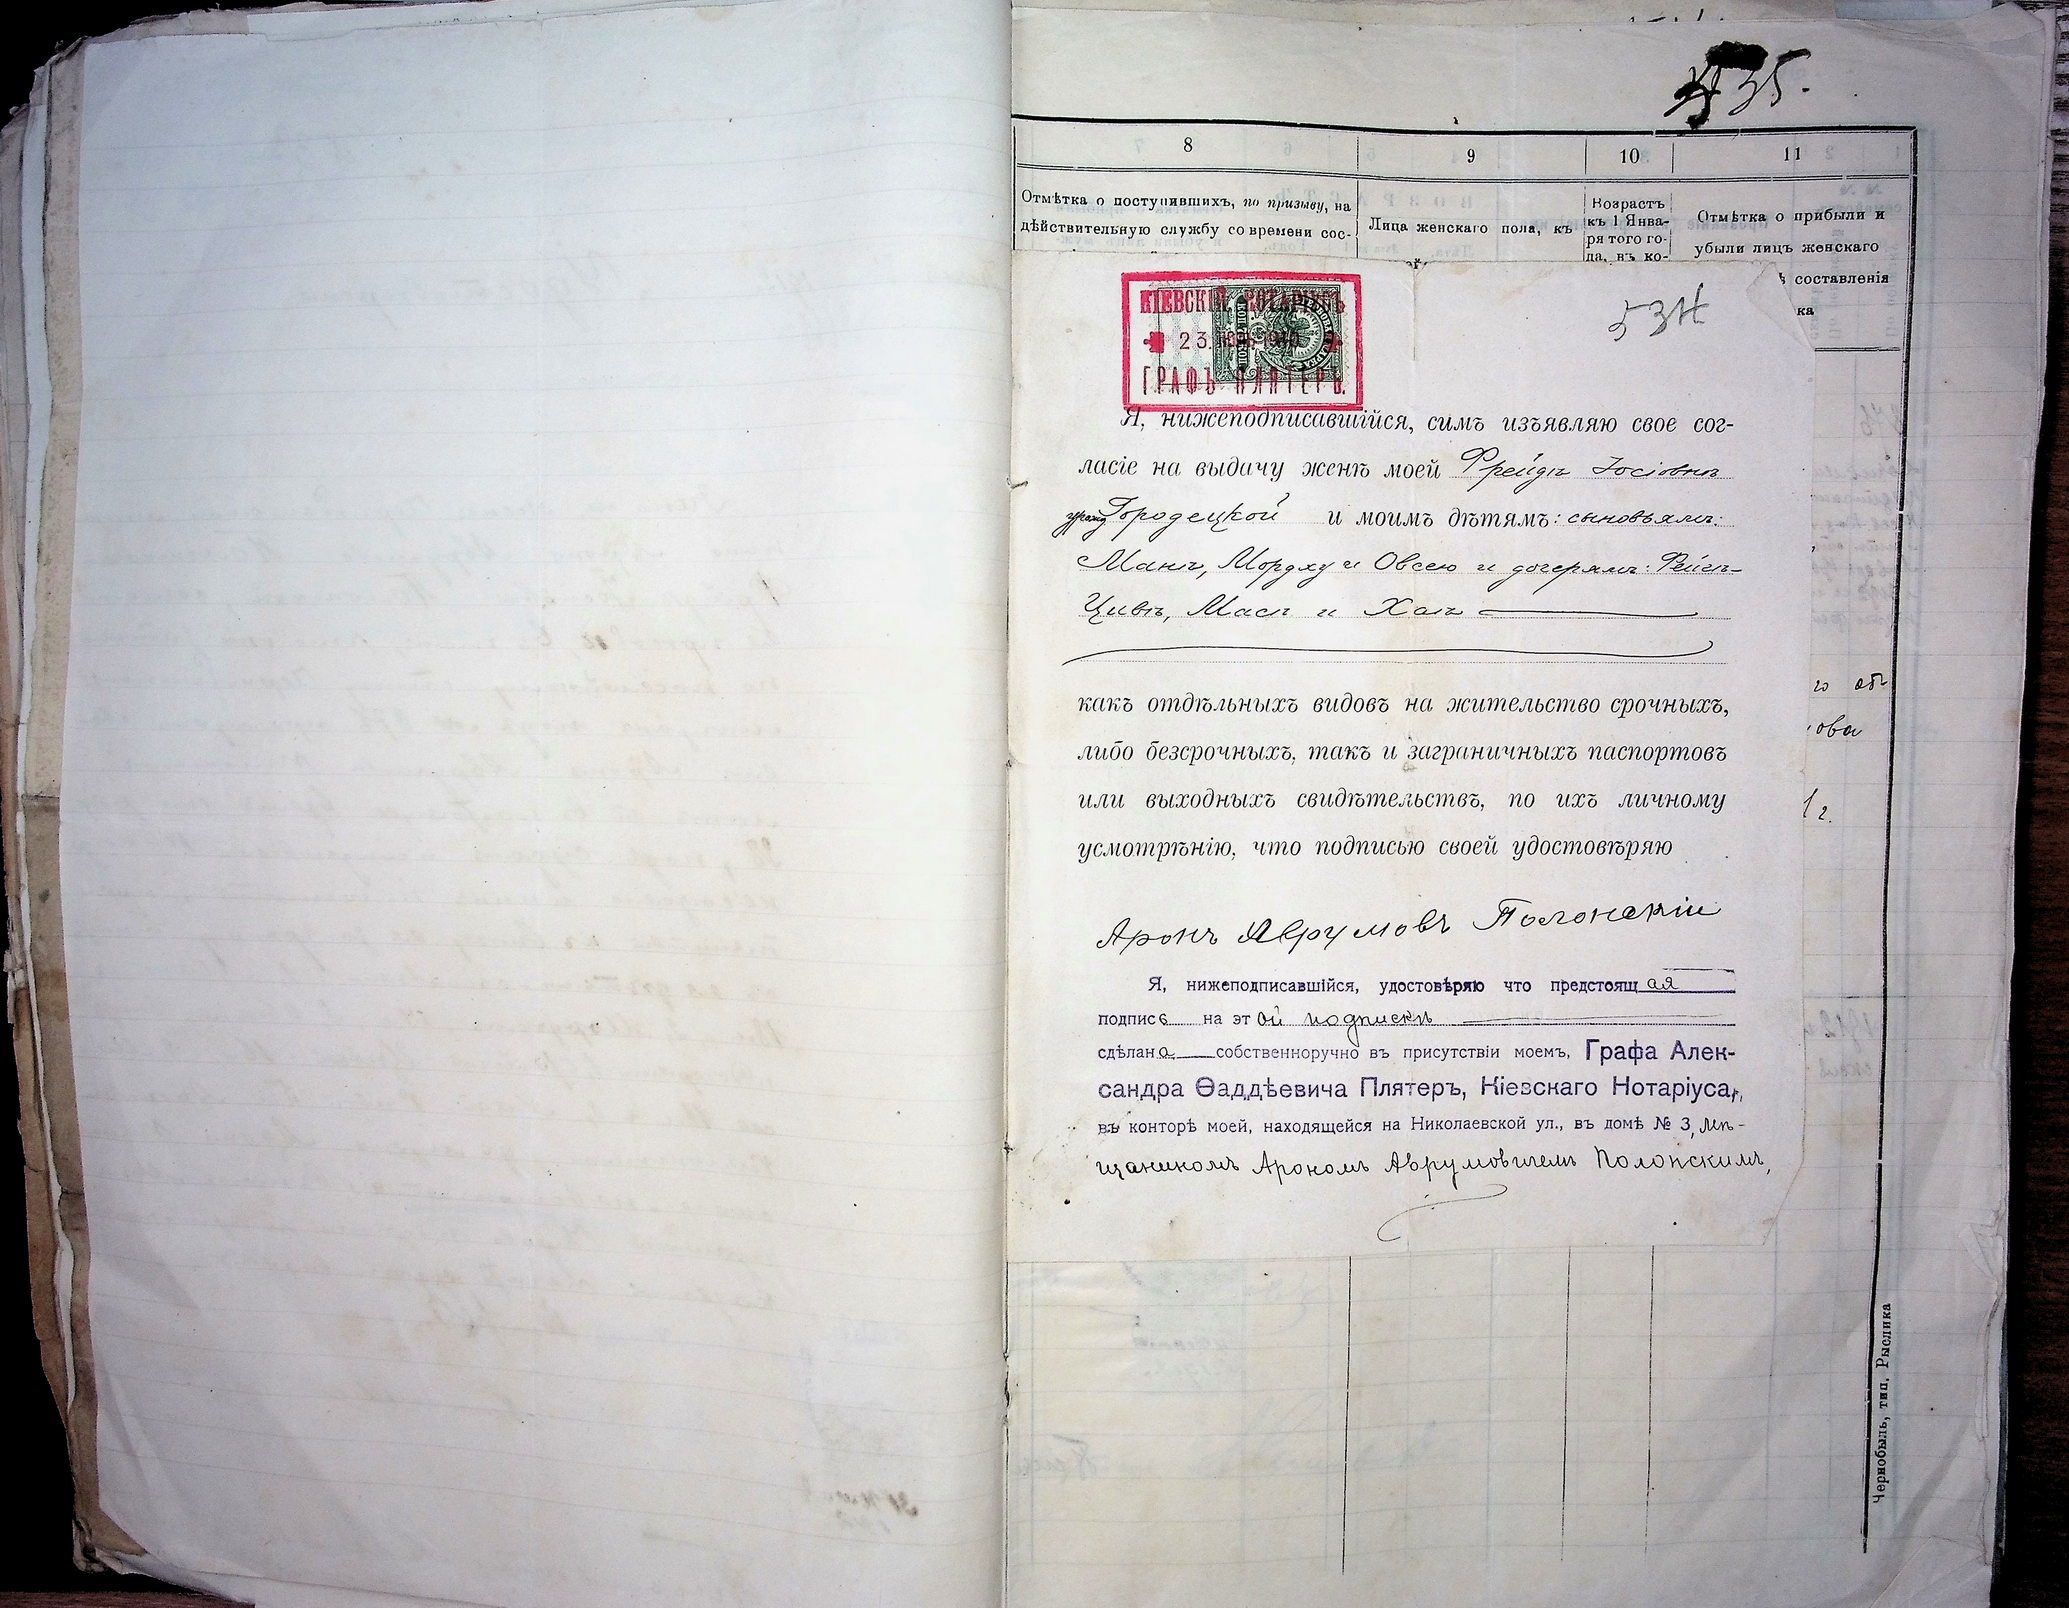 35.
8
9
10
11
Отмѣтка о поступившихъ, по призыву, на
дѣйствительную службу со времени сос-
Лица женскаго пола, къ
Возрастъ
къ 1 Янва-
ря того го-
да, въ ко-
Отмѣтка о прибыли и
убыли лицъ женскаго
составленія
ка
КІЕВСКІЙ НОТАРІУСЪ
23.
ГРАФЪ ПЛЯТЕРЪ.
Я, нижеподписавшійся, симъ изъявляю свое сог-
ласіе на выдачу женѣ моей Фрейдѣ Іосіовнѣ
урожд Городецкой и моимъ дѣтямъ: сыновьямъ:
Манѣ, Мордху и Овсею и дочерямъ: Фейгѣ-
Цивѣ, Масѣ и Хаѣ
какъ отдѣльныхъ видовъ на жительство срочныхъ,
либо безсрочныхъ, такъ и заграничныхъ паспортовъ
или выходныхъ свидѣтельствъ, по ихъ личному
усмотрѣнію, что подписью своей удостовѣряю
Аронъ Аврумовъ Полонскій
Я, нижеподписавшійся, удостовѣряю что предстоящая
подпись на этой подпискѣ
сдѣлана собственноручно въ присутствіи моемъ, Графа Алек-
сандра Ѳаддѣевича Плятеръ, Кіевскаго Нотаріуса,
въ конторѣ моей, находящейся на Николаевской ул., въ домѣ № 3, мѣ-
щаниномъ Арономъ Аврумовичемъ Полонскимъ,
го об-
ова
1 г.
Чернобыль, тип. Рыслика